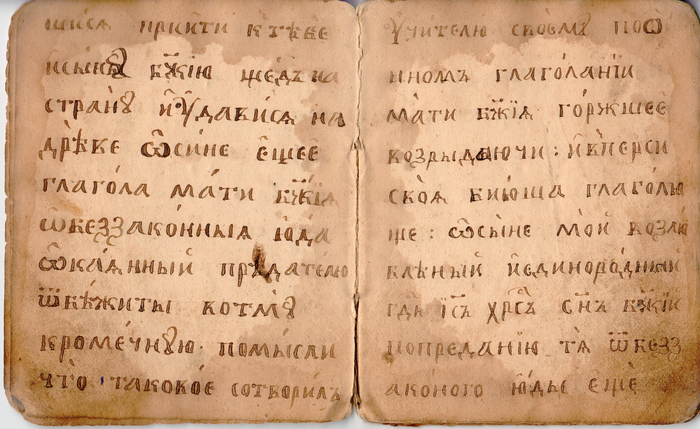 шися прийти к тѣбе
исынꙋ бж҃ію шедъ на
странꙋ и҆ꙋдависѧ на
дрѣве ѡ҆сине е҆щеѐ
глагола мати бж҃ія
ѡ беззаконныя ію́да
ѡ҆каѧнный предателю
ѿбѣжиты котмꙋ
кромечнꙋю помысли
что таковое сотворилъ
Ꙋчителю своемꙋ поѡ
ином глаголаніи
мати бж҃ія горжшеѐ
возрыдаючи : и҆вперси
своѧ биюща глаголю
ще : ѡ҆сыне мой возлю
бленый иединородный
гдⷭ҇ь іс҃ъ хрⷭ҇съ сн҃ъ бж҃ии
попреданію тѧ ѿбезз
аконого июды еще